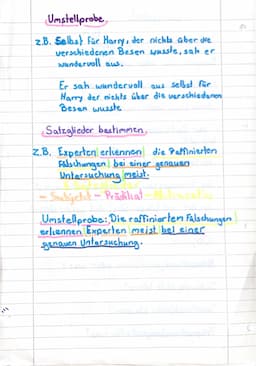 Umstellprobe
z.B. Selbst für Harry, der nichts über die
verschiedenen Besen wusste, sah er
wundervoll aus.
Er sah wundervoll aus selbst für
Harry der nichts über die verschiedenen
Besen wusste
Satzglieder bestimmen
z.B. Experten erkennen die raffinierten
Fälschungen bei einer genauen
Untersuchung meist.
- Subjekt - Prädikat -
Umstellprobe: Die raffinierten Fälschungen
erkennen Experten meist bei einer
genauen Untersuchung.